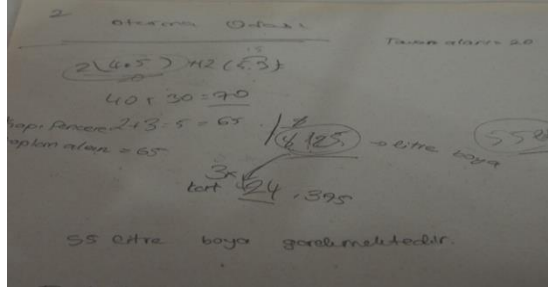 2 Oturma Odası
Tavan alanı = 20
2(4.5) + 2(5.3)
15
40 + 30 = 70
Kapı Pencere 2+3=5 = 65
toplam alan = 65
8,125 → litre boya
3x
kat 24.375
55 litre boya gerekmektedir.